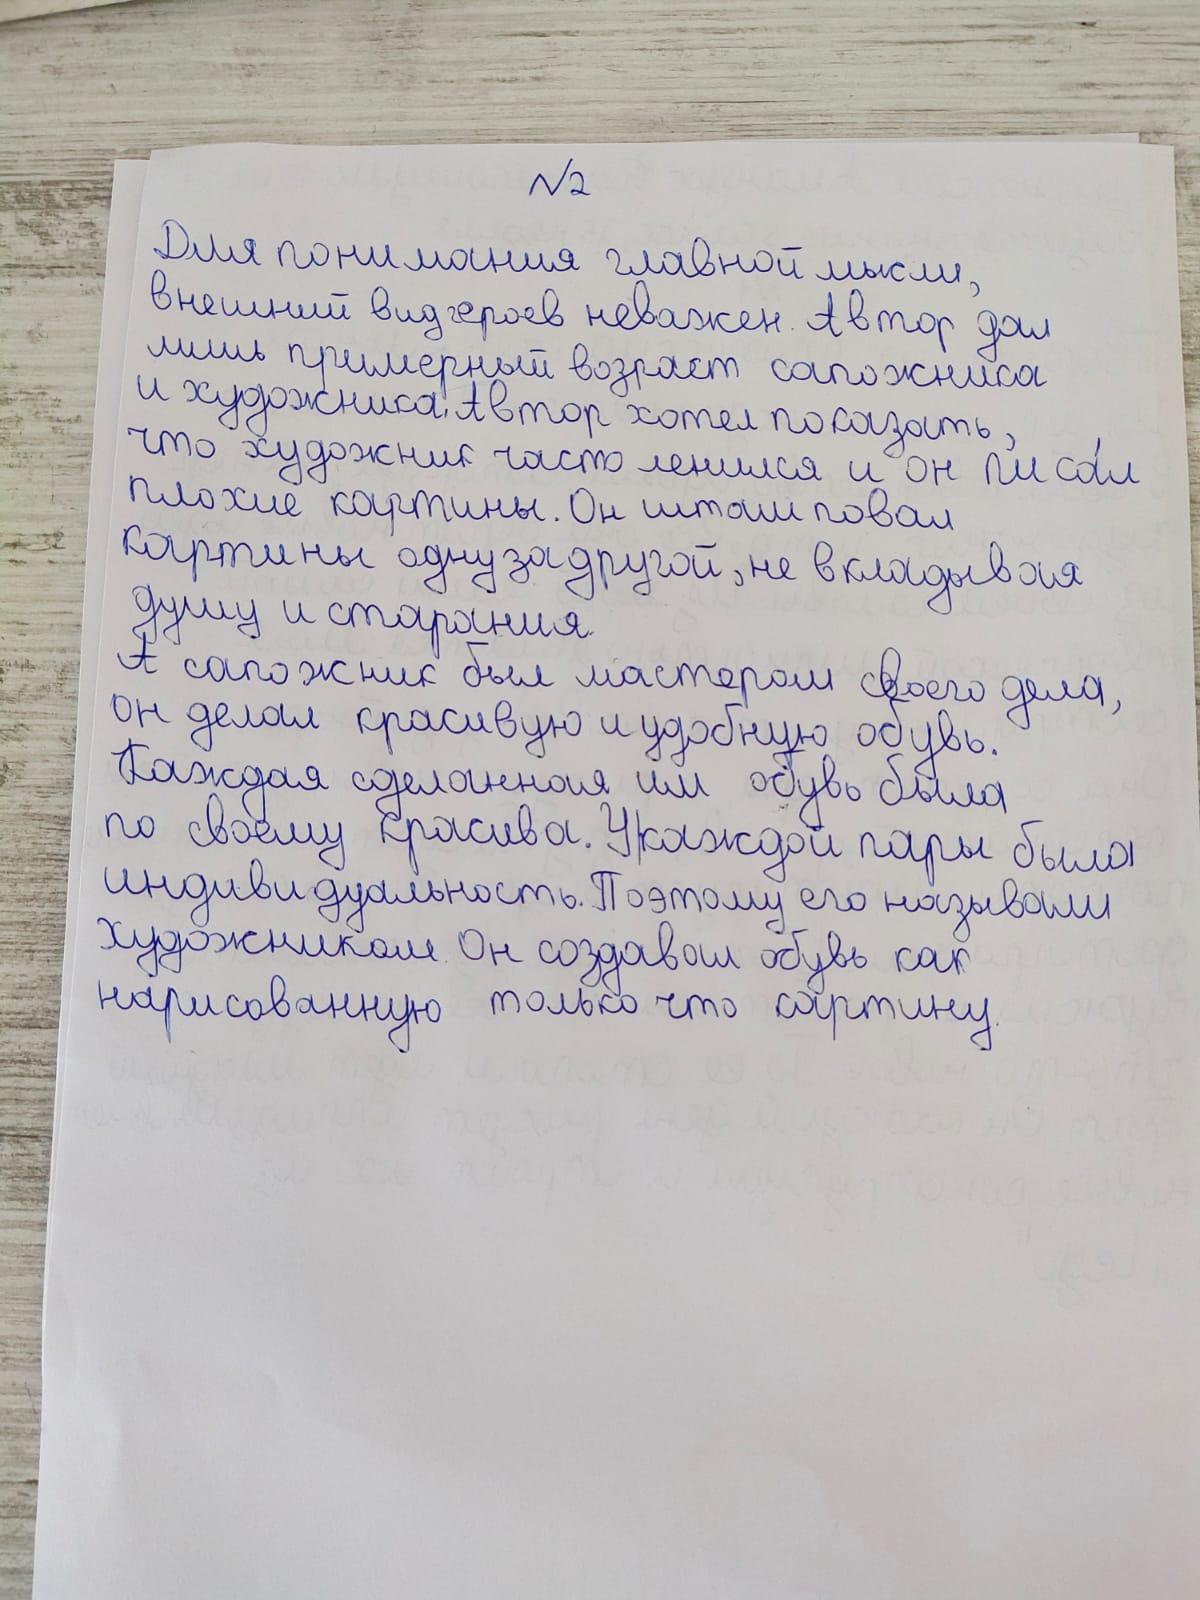 №2
Для понимания главной мысли,
внешний вид героев неважен. Автор дал
лишь примерный возраст сапожника
и художника. Автор хотел показать,
что художник часто ленился и он писа́л
плохие картины. Он штамповал
картины одну за другой, не вкладывая
душу и старания.
А сапожник был мастером своего дела,
он делал красивую и удобную обувь.
Каждая сделанная им обувь была
по своему красива. У каждой пары была
индивидуальность. Поэтому его называли
художником. Он создавал обувь как
нарисованную только что картину.